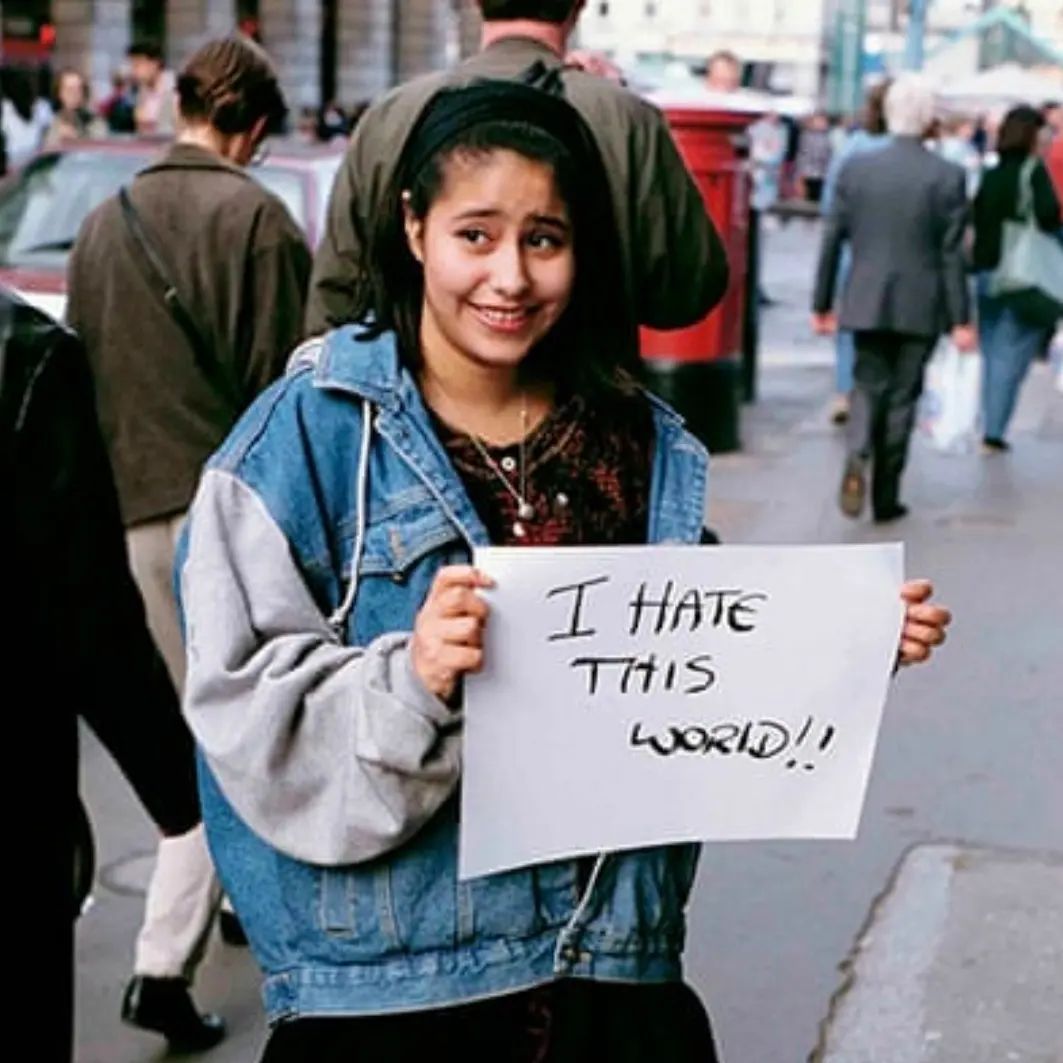 I HATE
THIS
WORLD!!